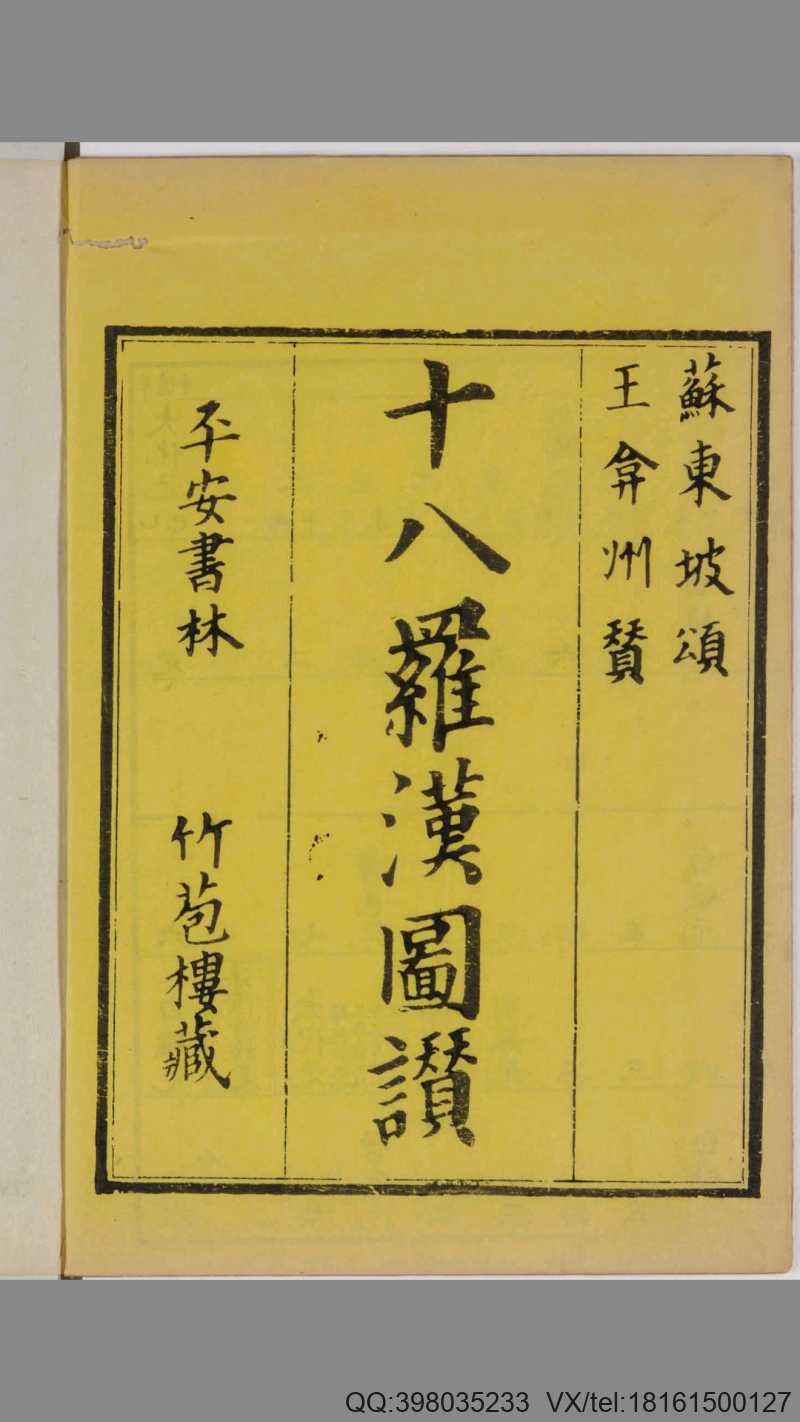 蘇東坡頌
王弇州賛
十八羅漢圖讃
平安書林 竹苞樓藏
QQ:398035233 VX/tel:18161500127